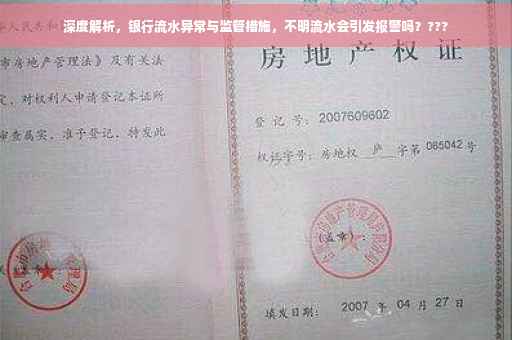 深度解析，银行流水异常与监管措施，不明流水会引发报警吗？???
华人民共和国
市房地产管理法》及有关法
定，对权利人申请登记本证所
审查属实，准予登记，特发此
房地产
登记号：2007609602
权证字号：房地权 庐 字第 065042 号
(盖章)：
填发日期：2007 年 04 月 27 日